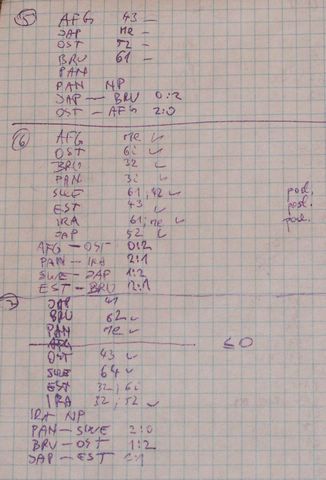 5 AFG 43 –
JAP ne –
OST 52 –
BRU 61 –
PAN
PAN NP
JAP – BRU 0:2
OST – AFG 2:0
6 AFG ne ✓
OST 62 ✓
BRU 32 ✓
PAN 32 ✓
SWE 61; 42 ✓ post.
EST 43 ✓ post.
IRA 61; ne ✓ post.
JAP 52 ✓
AFG – OST 0:2
PAN – IRA 2:1
SWE – JAP 1:2
EST – BRU 2:1
7 JAP 41
BRU 62 ✓
PAN ne ✓
OST 43 ✓
SWE 64 ✓
EST 32; 62
IRA 32; 52 ✓
IRA NP
PAN – SWE 2:0
BRU – OST 1:2
JAP – EST